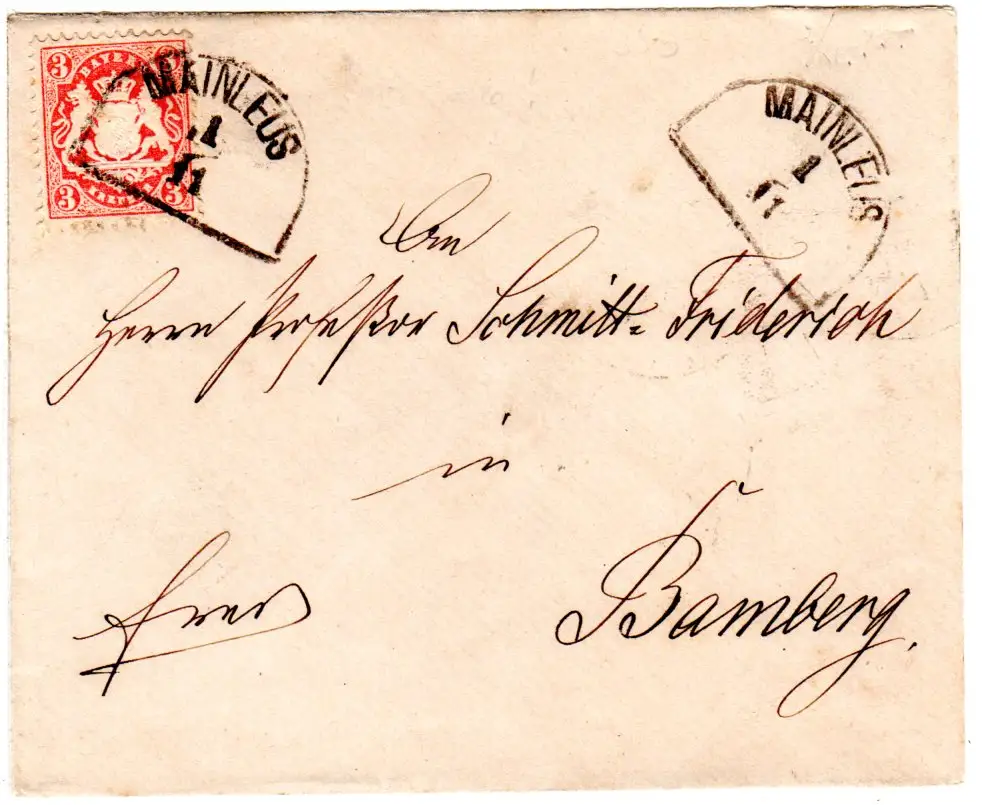 3 BAYERN 3
3 KREUZER 3
MAINLEUS
1
11
MAINLEUS
1
11
An
Herrn Professor Schmitt-Friderich
in
Bamberg.
frei